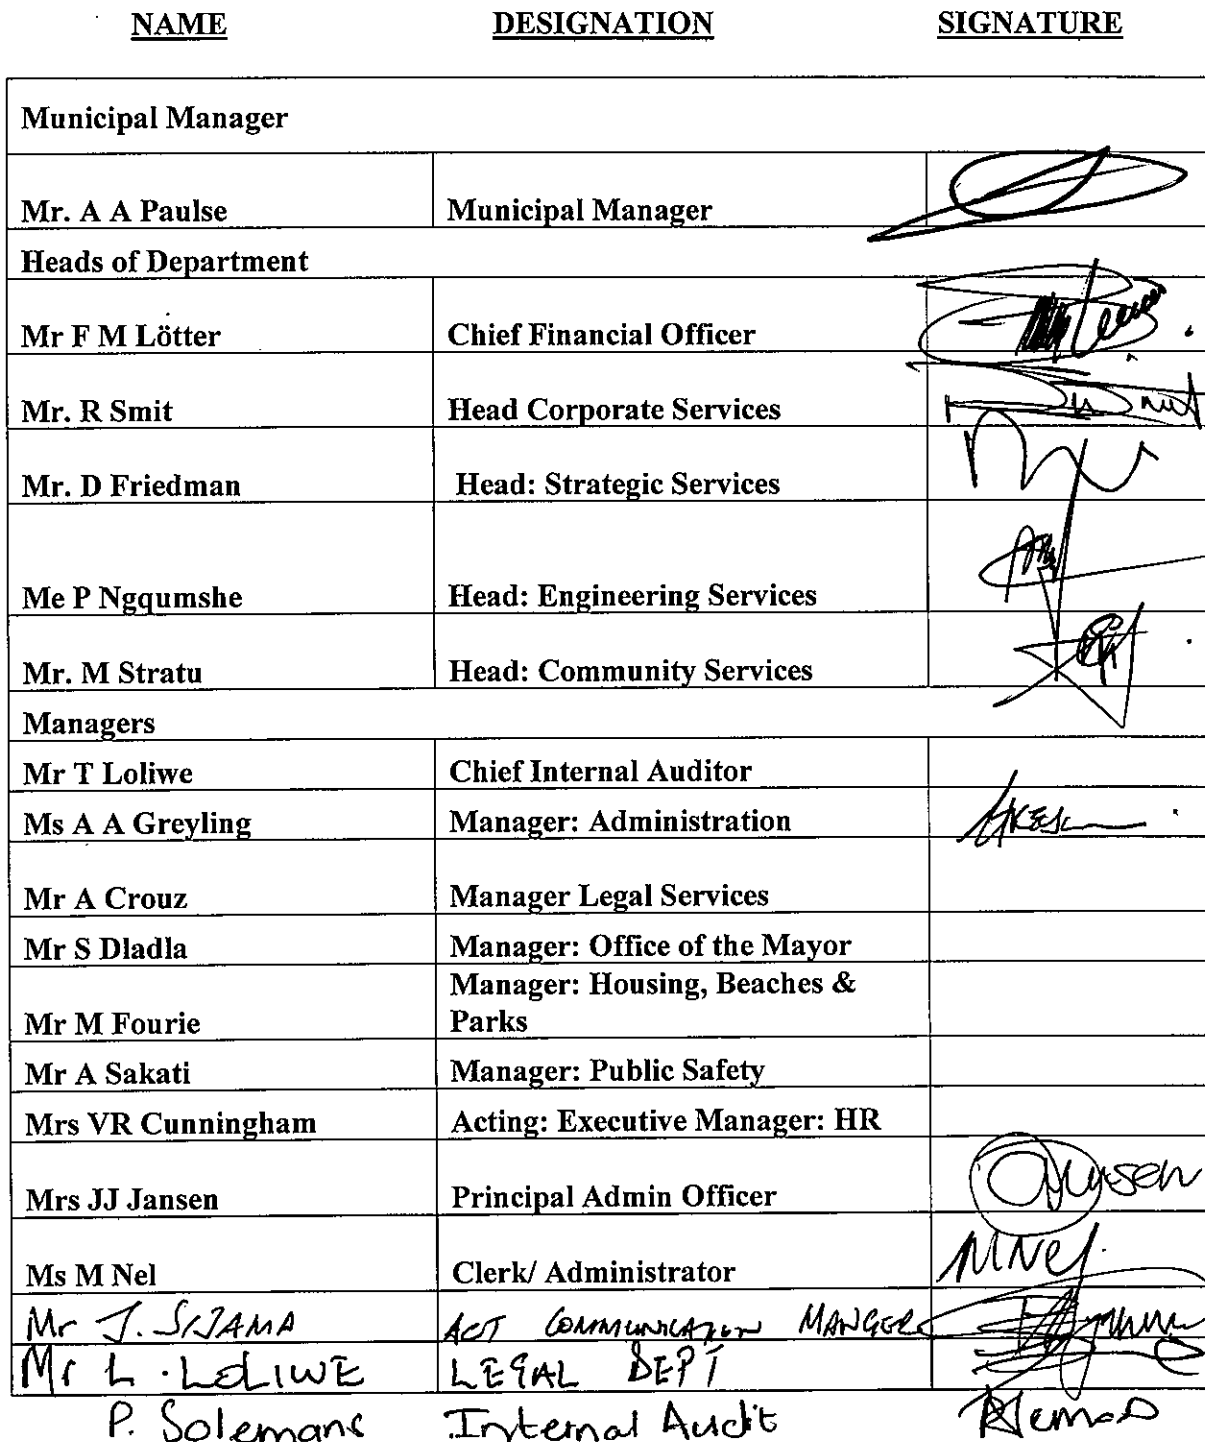 NAME DESIGNATION SIGNATURE
Municipal Manager
Mr. A A Paulse Municipal Manager
Heads of Department
Mr F M Lötter Chief Financial Officer
Mr. R Smit Head Corporate Services
Mr. D Friedman Head: Strategic Services
Me P Ngqumshe Head: Engineering Services
Mr. M Stratu Head: Community Services
Managers
Mr T Loliwe Chief Internal Auditor
Ms A A Greyling Manager: Administration
Mr A Crouz Manager Legal Services
Mr S Dladla Manager: Office of the Mayor
Manager: Housing, Beaches &
Mr M Fourie Parks
Mr A Sakati Manager: Public Safety
Mrs VR Cunningham Acting: Executive Manager: HR
Mrs JJ Jansen Principal Admin Officer
Ms M Nel Clerk/ Administrator MNel
Mr J. SIJAMA ACT COMMUNICATION MANGER
Mr L. LOLIWE LEGAL DEPT
P. Solemans Internal Audit